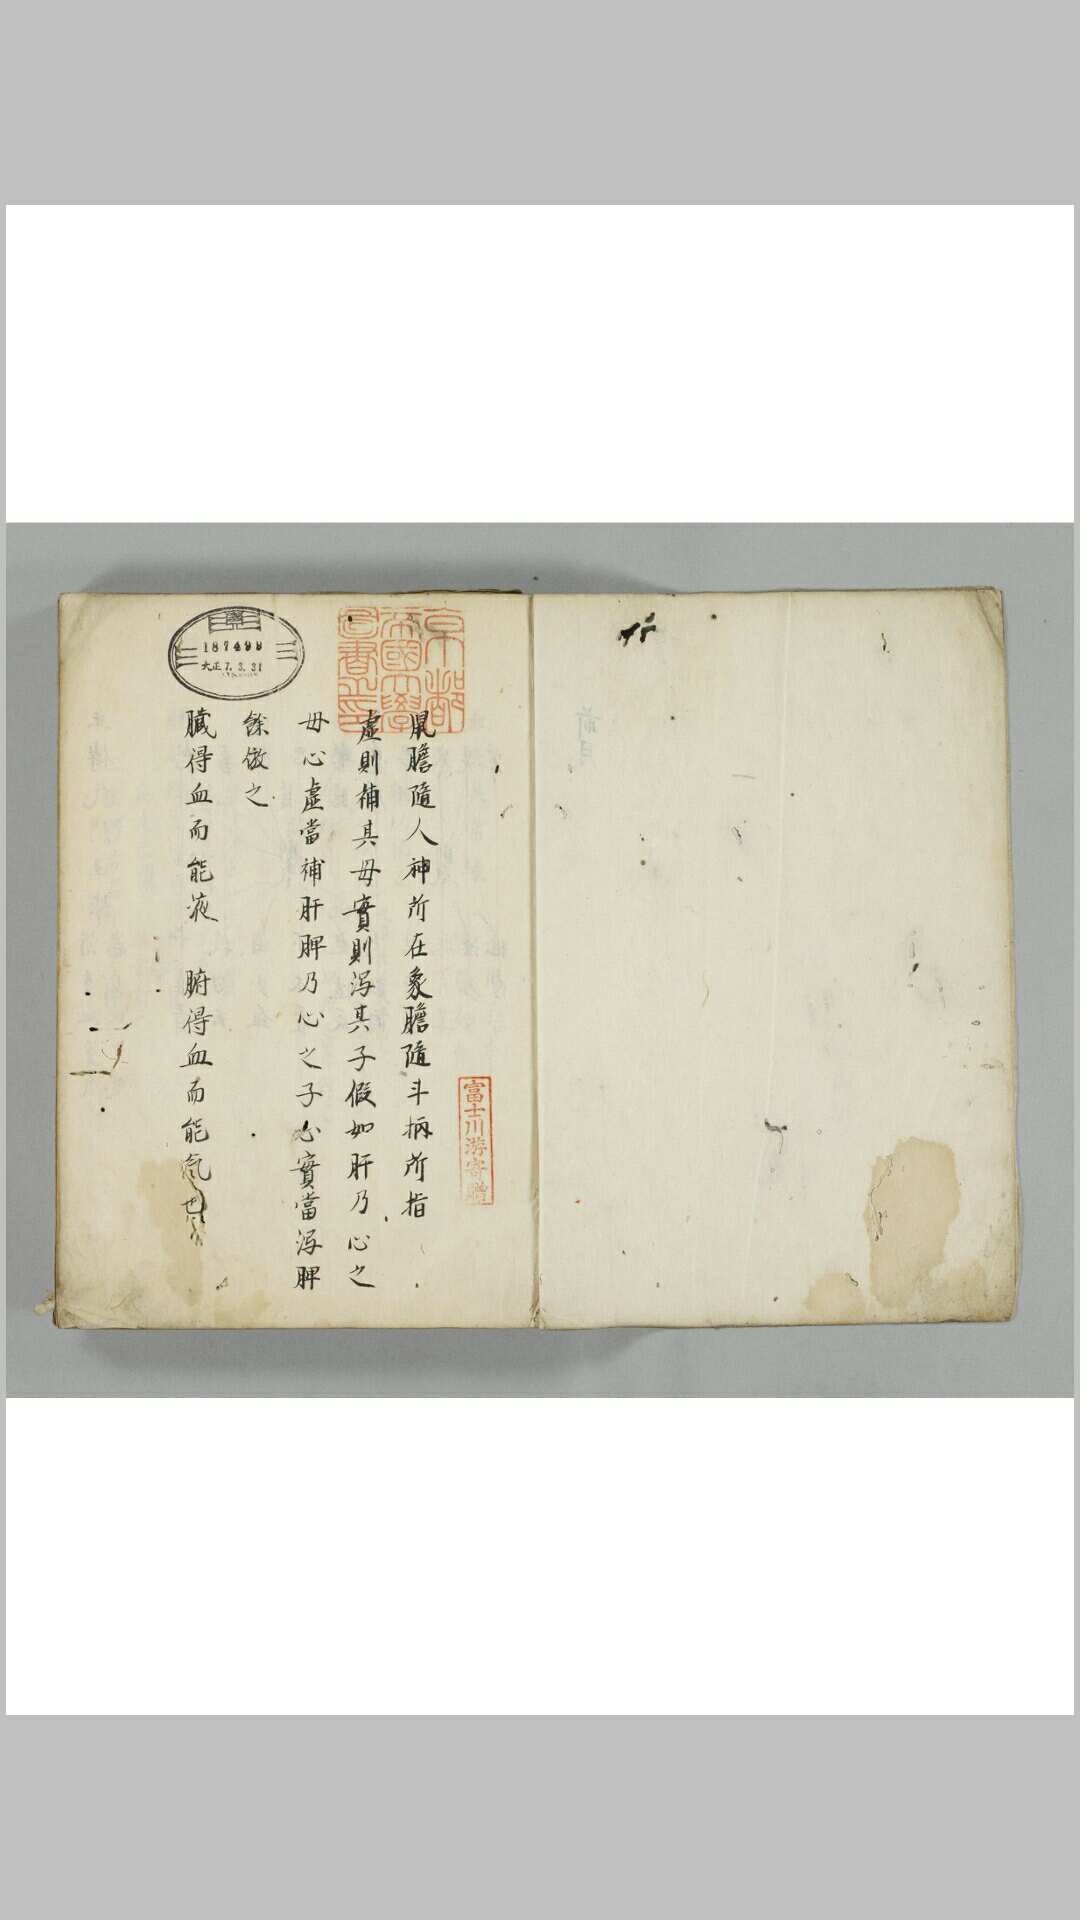 鼠膽隨人神所在象膽隨斗柄所指
虛則補其母實則瀉其子假如肝乃心之
母心虛當補肝脾乃心之子心實當瀉脾
餘倣之
臟得血而能液 腑得血而能氣
京都
帝國大學
圖書之印
富士川游寄贈
187499
大正7.3.31